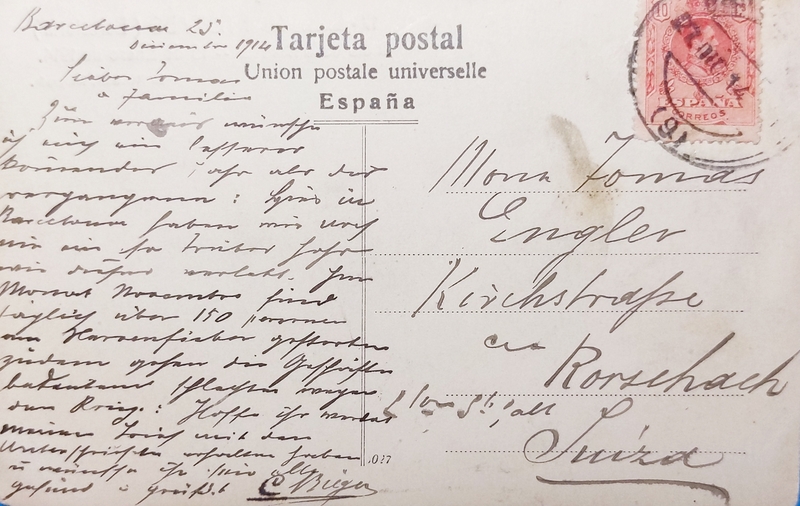 Barcelona 25.
Diciembre 1914
Tarjeta postal
Union postale universelle
España
Lieber Tomas
& Familie
Zum voraus wünsche
ich euch ein besseres
kommendes Jahr als das
vergangene: Hier in
Barcelona haben wir noch
nie ein so trübes Jahr
wie dieses verlebt. Im
Monat November sind
täglich über 150 Personen
am Nervenfieber gestorben
zudem gehen die Geschäfte
bedeutend schlechter wegen
dem Krieg: Hoffe ihr werdet
meinen Brief mit den
Unterschriften erhalten haben
u wünsche ihr seid alle
gesund & grüßt C Bieger
.027
10
27 DIC 14
(9)
ESPAÑA
CORREOS
Tomas
Engler
Kirchstraße
Rorschach
Suiza